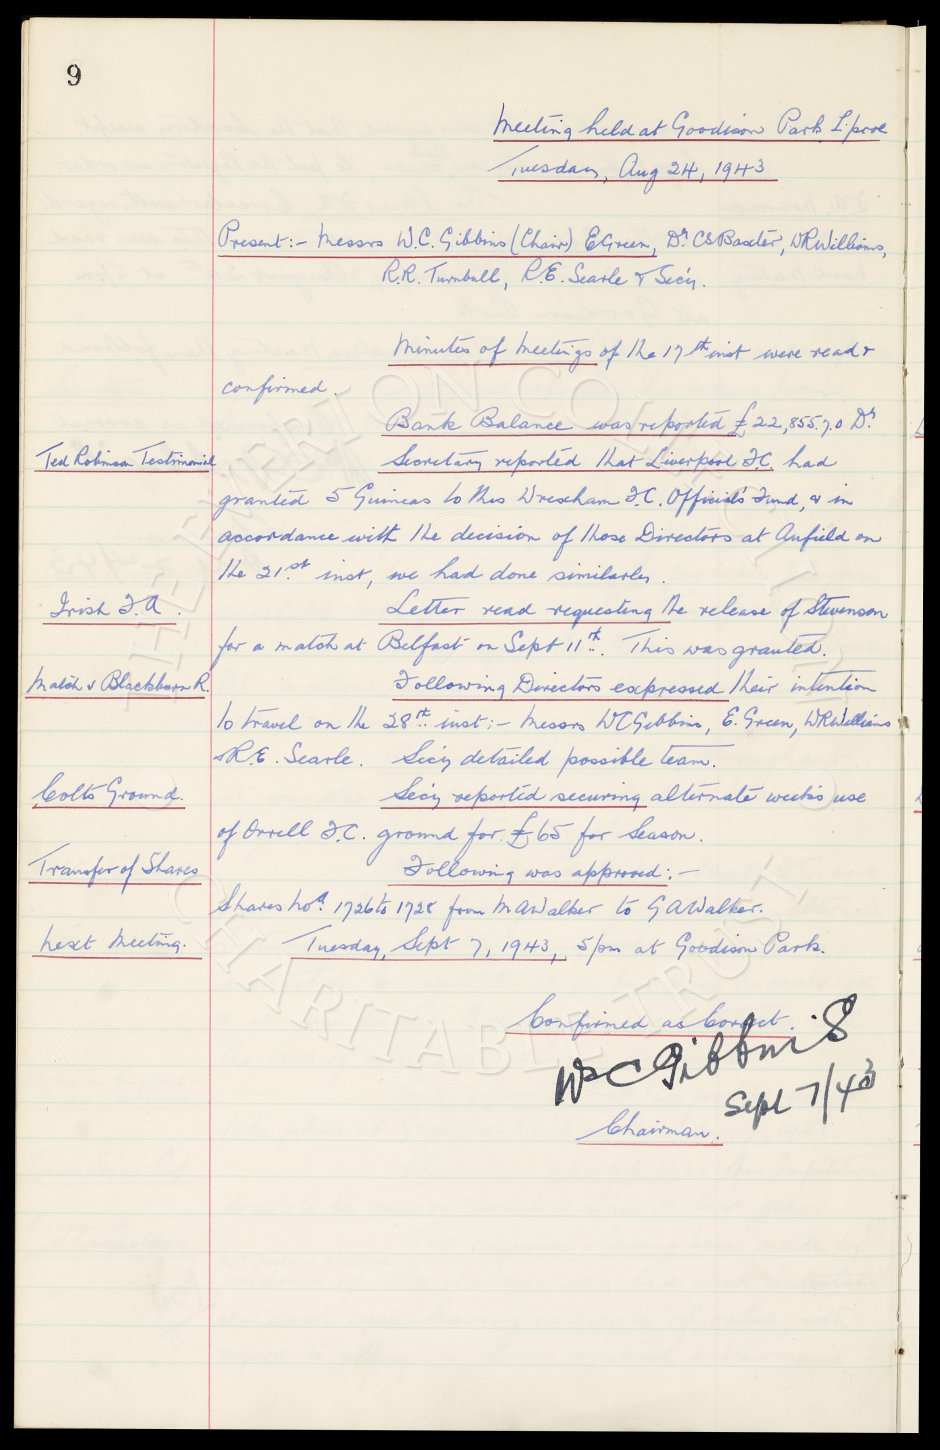 9
Meeting held at Goodison Park L'pool
Tuesday, Aug 24, 1943
Present:- Messrs W.C. Gibbins (Chair) E Green, Dr CS Baxter, WR Williams,
R.R. Turnbull, R.E. Searle & Sec'y.
Minutes of Meetings of the 17th inst were read &
confirmed.
Bank Balance was reported £22,855.7.0 Dr
Ted Robinson Testimonial Secretary reported that Liverpool F.C. had
granted 5 Guineas to this Wrexham F.C. Official's Fund, & in
accordance with the decision of those Directors at Anfield on
the 21st inst, we had done similarly.
Irish F.A. Letter read requesting the release of Stevenson
for a match at Belfast on Sept 11th. This was granted.
Match v Blackburn R. Following Directors expressed their intention
to travel on the 28th inst:- Messrs WC Gibbins, E. Green, WR Williams
& R.E. Searle. Sec'y detailed possible team.
Colts Ground. Sec'y reported securing alternate weeks use
of Orrell F.C. ground for £65 for Season.
Transfer of Shares Following was approved:-
Shares Nos. 1726 to 1728 from M A Walker to G A Walker.
Next Meeting. Tuesday, Sept 7, 1943, 5pm at Goodison Park.
Confirmed as Correct.
Wm C Gibbins
Sept 7/43
Chairman.
THE EVERTON COLLECTION
CHARITABLE TRUST